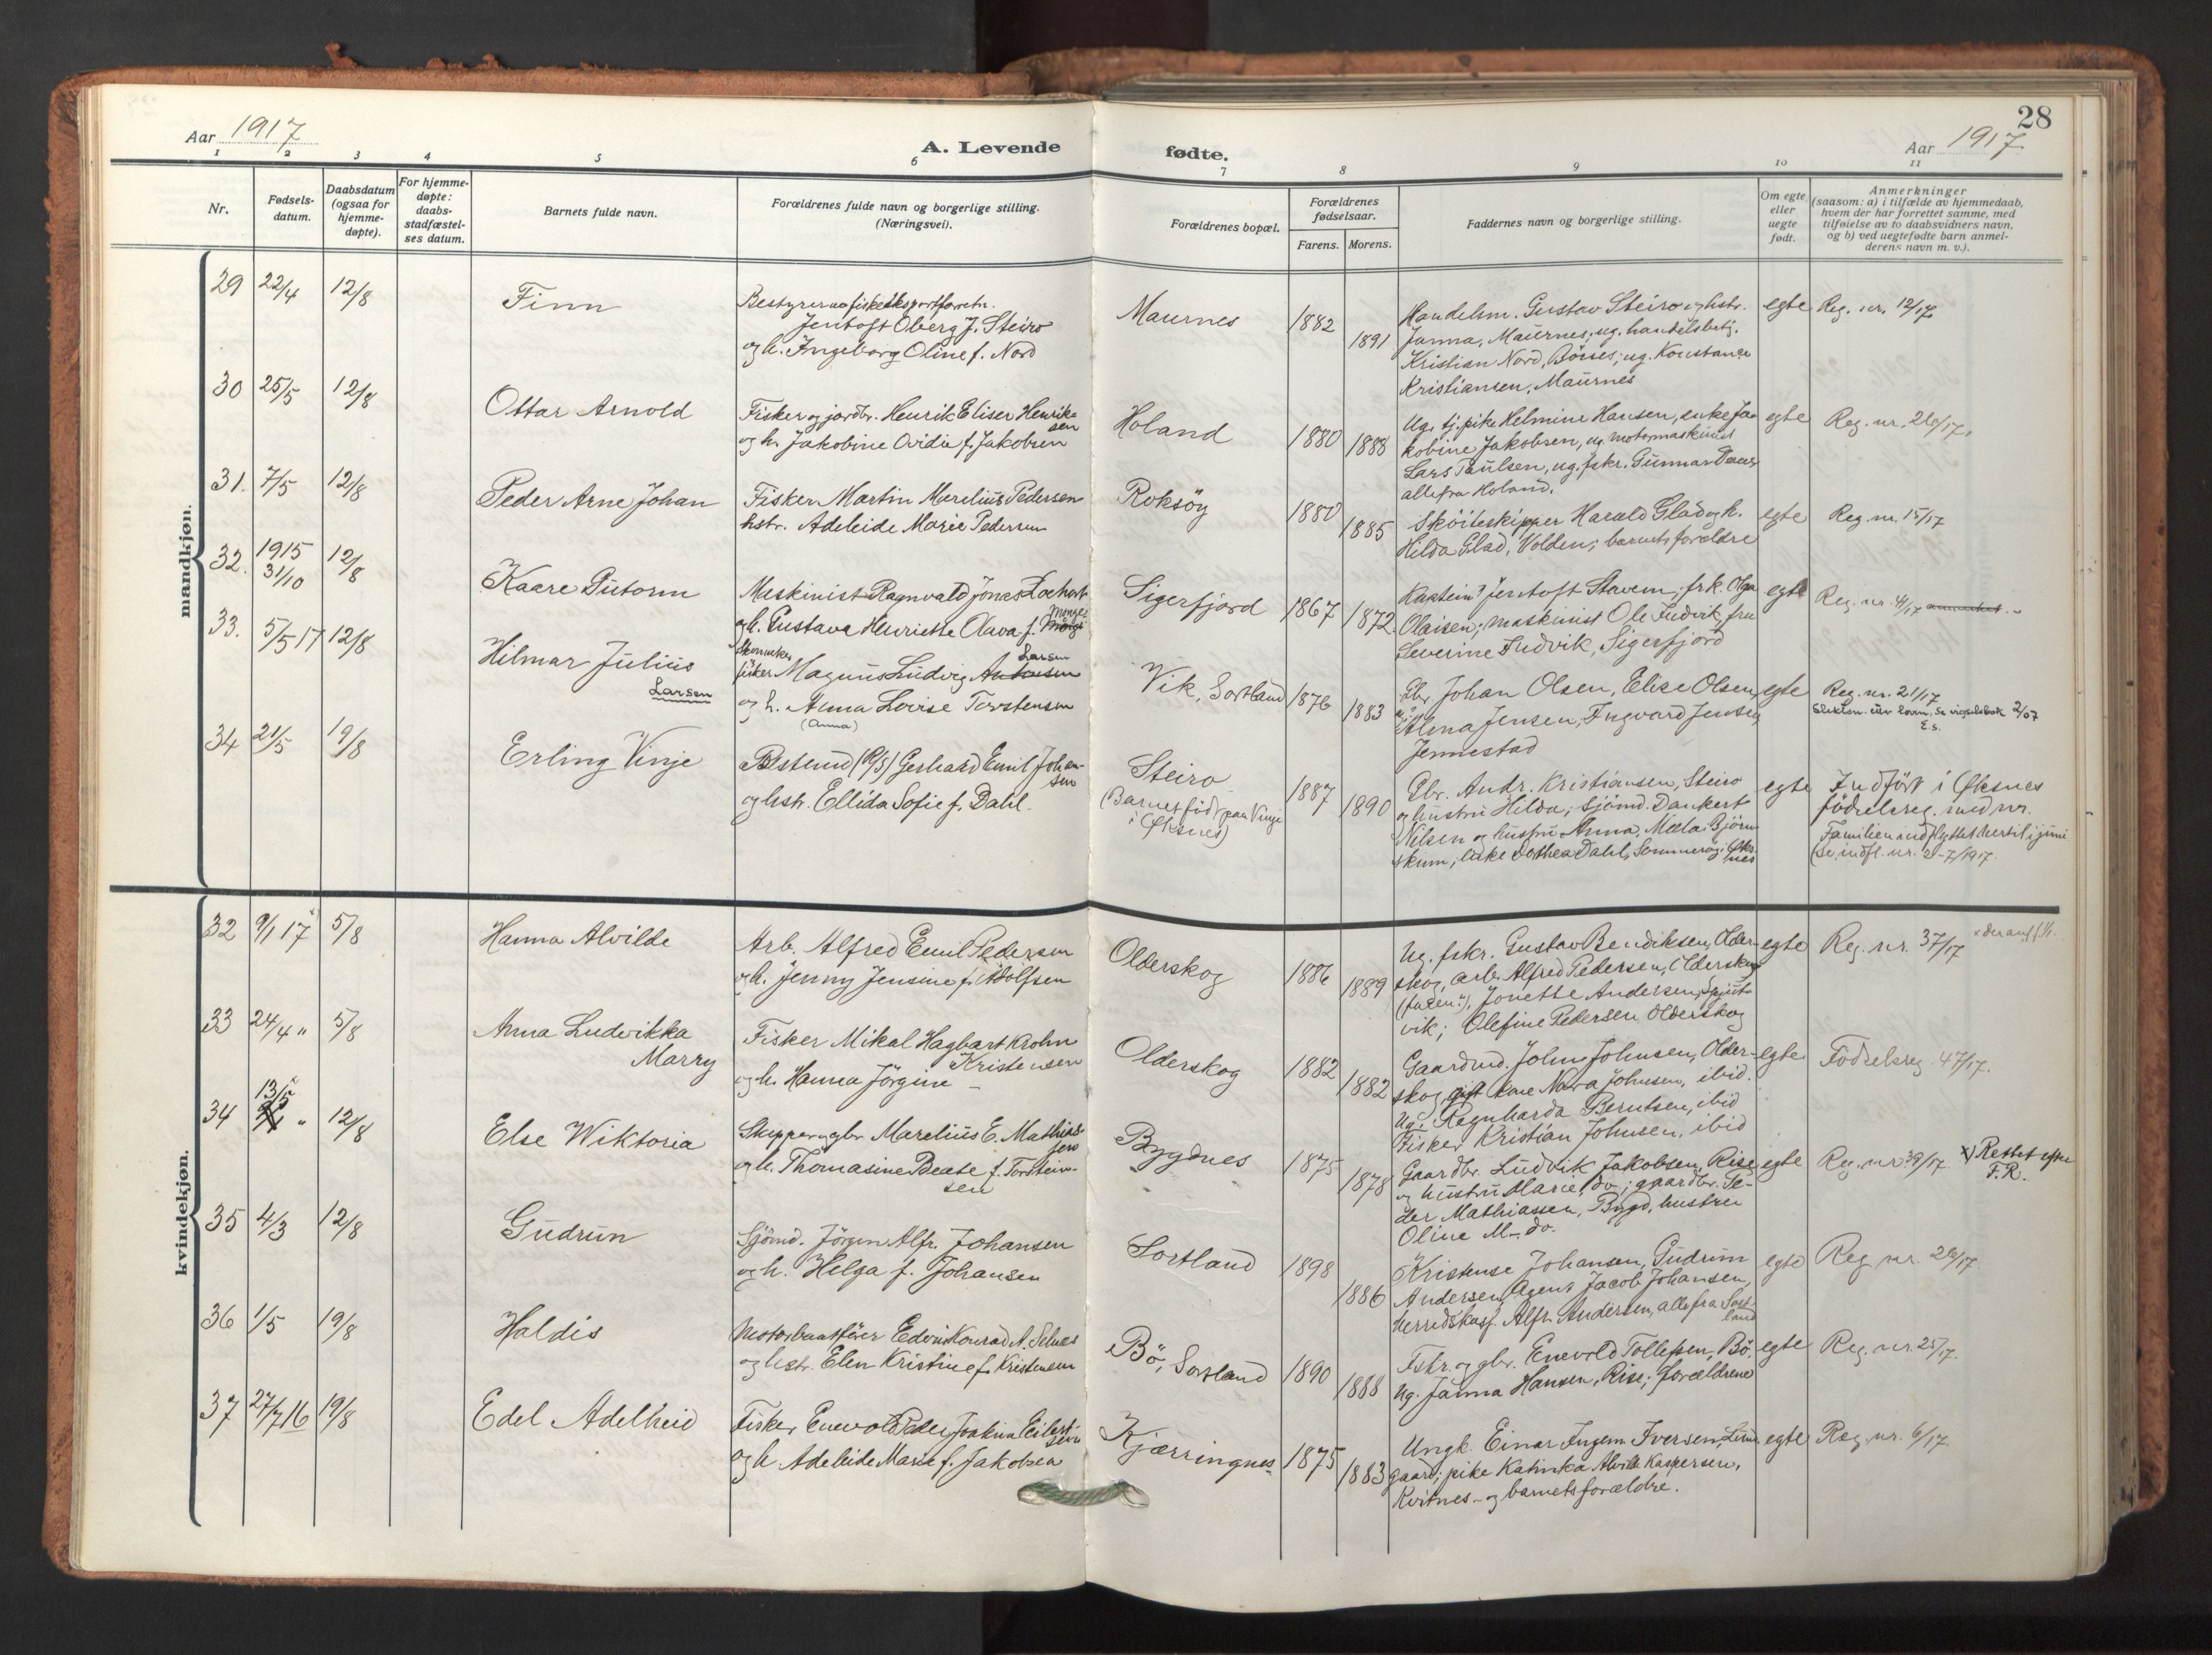 Aar 1917
A. Levende
fødte.
28
Aar 1917
1 2 3 4 5 6 7 8 9 10 11
Nr.
Fødsels-
datum.
Daabsdatum
(ogsaa for
hjemme-
døpte).
For hjemme-
døpte:
daabs-
stadfæstel-
ses datum.
Barnets fulde navn.
Forældrenes fulde navn og borgerlige stilling.
(Næringsvei).
Forældrenes bopæl.
Forældrenes
fødselsaar.
Farens. Morens.
Faddernes navn og borgerlige stilling.
Om egte
eller
uegte
født.
Anmerkninger
(saasom: a) i tilfælde av hjemmedaab,
hvem der har forrettet samme, med
tilføielse av to daabsvidners navn,
og b) ved uegtefødte barn anmel-
derens navn m. v.).
mandkjøn.
29 22/4 12/8
Finn
Bestyrer av fiskeeksportforretn.
Jentoft Oberg J. Steiro
og h. Ingeborg Oline f. Nord
Maurnes
1882 1891
Handelsm. Gustav Steiro og hstr.
Janna, Maurnes; ug. handelsbetj.
Kristian Nord, Börses; ug. Konstance
Kristiansen, Maurnes
egte
Reg. nr. 12/17
30 25/5 12/8
Ottar Arnold
Fisker og jordbr. Henrik Eliser Henrik-
sen
og h. Jakobine Ovidia f. Jakobsen
Holand
1880 1888
Ug. tj. pike Helmine Hansen, enke Ja-
kobine Jakobsen, ug. motormaskinist
Lars Paulsen, ug. fskr. Gunnar
alle fra Holand.
egte
Reg. nr. 26/17.
31. 7/5 12/8
Peder Arne Johan
Fisker Martin Marelius Pedersen
hstr. Adeleide Marie Pedersen
Roksöy
1880 1885
Sköiteskipper Harald Glad og h.
Hilda Glad, Volden; barnets forældre
egte
Reg. nr. 15/17
32. 1915
31/10 12/8
Kaare Gutorm
Maskinist Ragnvald Jonas Zachari-
og h. Gustava Henriette Olava f.
Sigerfjord
1867 1872.
Kaptein Jentoft Stavem; frk. Olga
Olaisen; maskinist Ole Indvik, fru
Severine Indvik, Sigerfjord
egte
Reg. nr. 4/17
33. 5/5 17 12/8
Hilmar Julius
Larsen
Skomaker
fisker Magnus Ludvig Antonsen
Larsen
og h. Anna Lovise Torstensen
(Anna)
Vik, Sortland
1876 1883
Gbr. Johan Olsen, Elise Olsen,
Alma Jensen, Ingvard Jensen,
Jennestad
egte
Reg. nr. 21/17
Slektsn. efter loven. Se vigselsbok 2/07
E.s.
34 21/5 19/8
Erling Vinje
Bestemd (D/S) Gerhard Emil Johan-
sen
og hstr. Ellida Sofie f. Dahl.
Steiro
(Barnet född paa Vinje
i Öksnes)
1887 1890
Gbr. Andr. Kristiansen, Steiro
og hustru Hilda; sjömd. Dankert
Nilsen og hustru Anna, Meela i Björn
skinn; enke Dorthea Dahl, Sommeröy i Öks-
nes
egte
Indfört i Öksnes
födselsreg. med nr.
Familien indflyttet hertil i juni
(Se indfl. nr. 2-7/1917.
kvindekjøn.
32 9/1 17 5/8
Hanna Alvilde
Arb. Alfred Emil Pedersen
og h. Jenny Jensine f. Adolfsen
Olderskog
1886 1889
Ug. fskr. Gustav Bendiksen, Older-
skog, arb. Alfred Pedersen, Olderskog
(faren), Jonette Andersen,
vik; Olefine Pedersen Olderskog
egte
Reg. nr. 37/17
33 24/4 " 5/8
Anna Ludvikka
Marry
Fisker Mikal Hagbart Krohn
Kristensen
og h. Hanna Jörgine –
Olderskog
1882 1882
Gaardmd. John Johnsen, Older-
skog, gift kone Nora Johnsen, ibid.
Ug. Regnharda Berntsen, ibid
Fisker Kristian Johnsen, ibid
egte
Födselsreg. 47/17.
34 13/5 " 12/8
Else Wiktoria
Skipper og gbr. Marelius E. Mathias-
sen
og h. Thomasine Beate f. Torstein-
sen
Bygdnes
1875 1878
Gaardbr. Ludvik Jakobsen, Rise
og hustru Marie, do; gaardbr. Pe-
der Mathiassen, Bygd, hustru
Oline M. do.
egte
Reg. nr. 38/17
x) Rettet efter
F.R.
35 4/3 12/8
Gudrun
Sjömd. Jörgen Alfr. Johansen
og h. Helga f. Johansen
Sortland
1898 1886
Kristense Johansen, Gudrun
Andersen, Agent Jacob Johansen,
herredskasf. Alfr. Andersen, alle fra Sort-
land
egte
Reg. nr. 26/17.
36 1/5 19/8
Haldis
Motorbaatförer Edvin Konrad A. Selnes
og hstr. Elen Kristine f. Kristensen
Bö, Sortland
1890 1888
Fskr. og gbr. Enevold Tollefsen, Bö.
Ug. Janna Hansen, Rise; forældrene
egte
Reg. nr. 25/17.
37 27/7 16 19/8
Edel Adelheid
Fisker Enevold Peder Joakim Eilert-
sen
og h. Adeleide Marie f. Jakobsen
Kjærringnes
1875 1883
Ungk. Einar Ingem. Iversen,
gaard; pike Katinka Alvilde Kaspersen,
Kvitnes – og barnets forældre.
egte
Reg. nr. 6/17